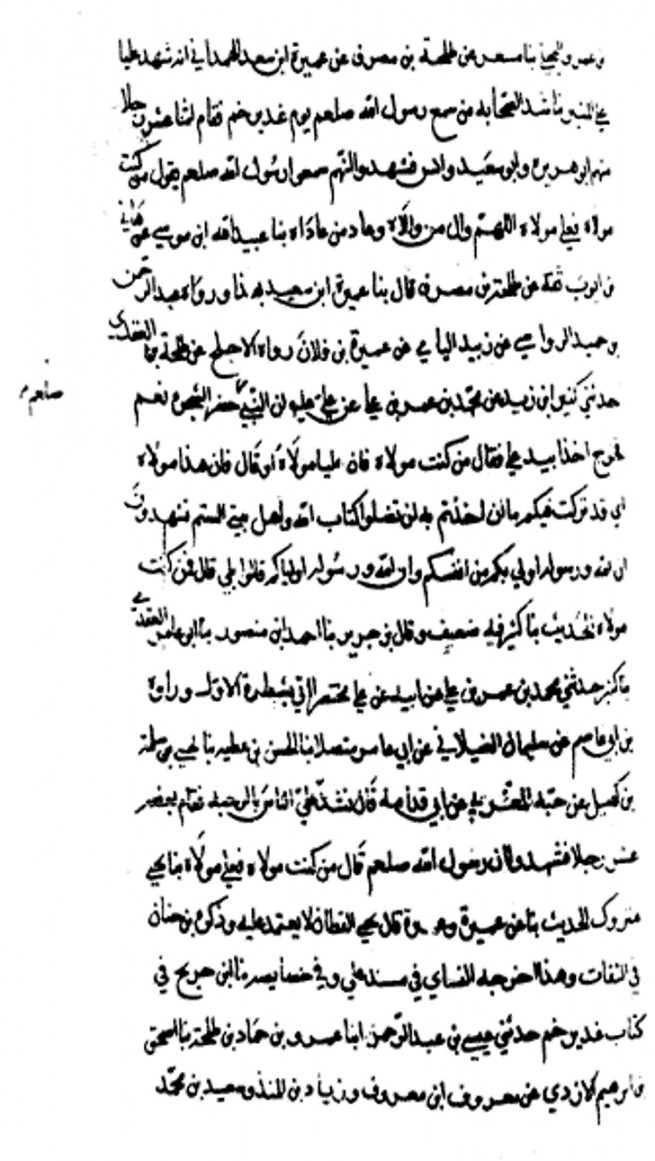 بن عمرو البجلي بنا مسعر عن طلحة بن مصرف عن عميرة ابن سعد الهمداني انه شهد عليا
على المنبر ناشد الصحابه من سمع رسول الله صلعم يوم غدير خم فقام اثنا عشر رجلا
منهم ابو هريرة وابو سعيد وانس فشهدوا انهم سمعوا رسول الله صلعم يقول من كنت
مولاه فعلي مولاه اللهم وال من والاه وعاد من عاداه بنا عبيد الله ابن موسى عن هاني
بن ايوب ثقة عن طلحة بن مصرف قال بنا عميرة ابن سعيد بهذا ورواه عبد الرحمن
بن حميد الرواسي عن زبيد اليامي عن عميرة بن فلان رواه الاجلح عن طلحة بنا العقدي
حدثني كثير ابن زيد عن محمد بن عمر بن علي عن علي ان النبي حضر الشجرة بخم
صلعم
فخرج اخذا بيد علي فقال من كنت مولاه فان عليا مولاه او قال فان هذا مولاه
اني قد تركت فيكم ما ان اخذتم به لن تضلوا كتاب الله واهل بيتي الستم تشهدون
ان الله ورسوله اولى بكم من انفسكم وان الله ورسوله اولياكم قالوا بلى قال فمن كنت
مولاه الحديث بنا كثير فيه ضعيف وقال بن جرير بنا احمد ابن منصور بنا ابو عامر العقدي
بنا كثير حدثني محمد بن عمر بن علي عن ابيه عن علي مختصرا اتى بشطره الاول ورواه
بن ابي عاصم عن سليمان الغيلاني عن ابي عامر متصلا بنا الحسن بن عطيه بنا يحيى بن سلمة
بن كهيل عن حبة العرني عن ابي قدامه قال نشد علي الناس بالرحبه فقام بضعة
عشر رجلا فشهدوا ان رسول الله صلعم قال من كنت مولاه فعلي مولاه بنا يحيى
متروك الحديث بنا عن عميرة قال يحيى القطان لا يعتمد عليه وذكره بن حبان
في الثقات وهذا اخرجه النساي في مسند علي وفي خصايصه بنا ابن جريج في
كتاب غدير خم حدثني عيسى بن عبد الرحمن ابنا عمرو بن حماد بن طلحة بنا اسحق
بن ابرهيم الازدي عن معروف ابن معروف وزياد بن المنذر وسعيد بن محمد